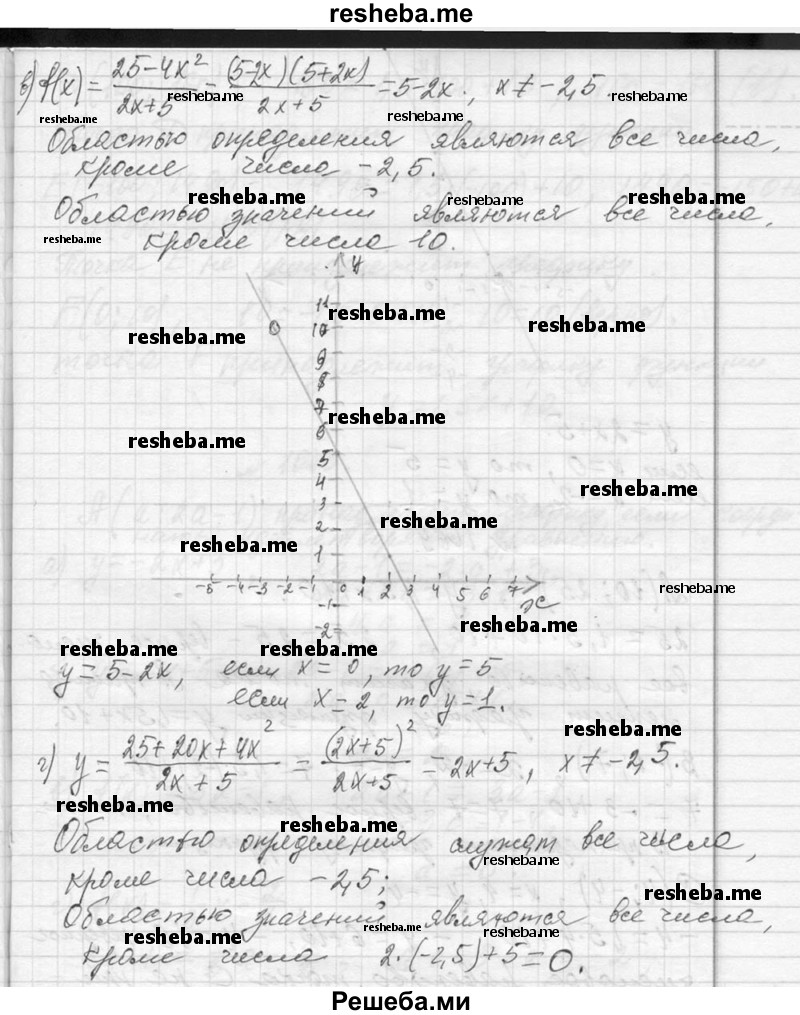 resheba.me
в) f(x) = (25-4x²)/(2x+5) = (5-2x)(5+2x)/(2x+5) = 5-2x; x ≠ -2,5.
resheba.me resheba.me resheba.me resheba.me
Областью определения являются все числа,
кроме числа -2,5.
resheba.me resheba.me
Областью значений являются все числа,
resheba.me resheba.me
кроме числа 10.
y
11
resheba.me
10
resheba.me resheba.me
9
8
7
resheba.me
6
resheba.me
5
4
resheba.me
3
resheba.me
2
resheba.me
1
-5 -4 -3 -2 -1 0 1 2 3 4 5 6 7
resheba.me
x
-1
-2
resheba.me
resheba.me resheba.me
y = 5-2x, если x = 0, то y = 5
если x = 2, то y = 1.
resheba.me
г) y = (25+20x+4x²)/(2x+5) = (2x+5)²/(2x+5) = 2x+5, x ≠ -2,5.
resheba.me
resheba.me
Областью определения служат все числа,
resheba.me
кроме числа -2,5;
resheba.me
Областью значений являются все числа,
resheba.me resheba.me resheba.me
кроме числа 2·(-2,5)+5=0.
Решеба.ми